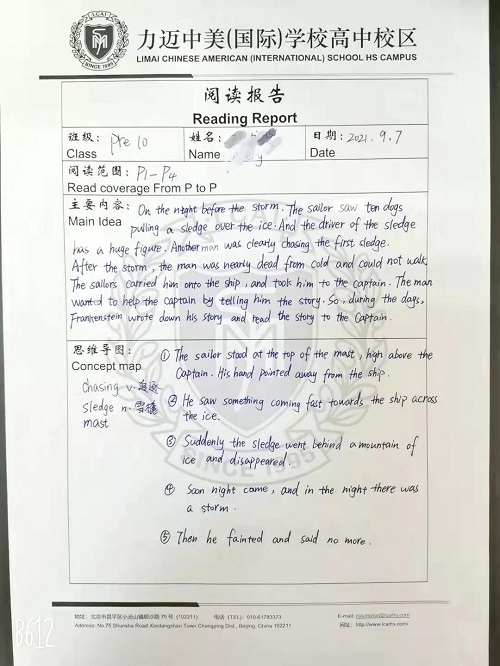 力迈中美(国际)学校高中校区
LIMAI CHINESE AMERICAN (INTERNATIONAL) SCHOOL HS CAMPUS
LCAIRS
SINCE 1995
阅读报告
Reading Report
班级: Pre 10
Class
姓名:
Name
日期: 2021.9.7
Date
阅读范围: P1-P4
Read coverage From P to P
主要内容:
Main Idea
On the night before the storm. The sailor saw ten dogs
pulling a sledge over the ice. And the driver of the sledge
has a huge figure. Another man was clearly chasing the first sledge.
After the storm, the man was nearly dead from cold and could not walk.
The sailors carried him onto the ship, and took him to the captain. The man
wanted to help the captain by telling him the story. So, during the days,
Frankenstein wrote down his story and read the story to the Captain.
思维导图:
Concept map
chasing v. 追逐
sledge n. 雪橇
mast
① The sailor stood at the top of the mast, high above the
Captain. His hand pointed away from the ship.
② He saw something coming fast towards the ship across
the ice.
③ Suddenly the sledge went behind a mountain of
ice and disappeared.
④ Soon night came, and in the night there was
a storm.
⑤ Then he fainted and said no more.
SINCE 1995
地址: 北京市昌平区小汤山镇顺沙路 75 号 (102211) 电话 (TEL) 010-61783373
Address: No.75 Shunsha Road,Xiaotangshan Town Changping Dist., Beijing, China 102211
网址: http://www.lcairs.com/
B612